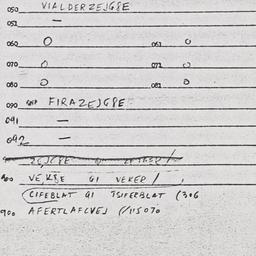 050 VIALDERZEJG8E
052 —
060 O 061 O
070 O 072 O
080 O 082 O
090 FIRAZEJG8E
091 —
092 —
VEKSE GI VEKER /
CIFEBLAT GI TSIFERBLAT (306
900 AFERTLAFCVEJ (/115070